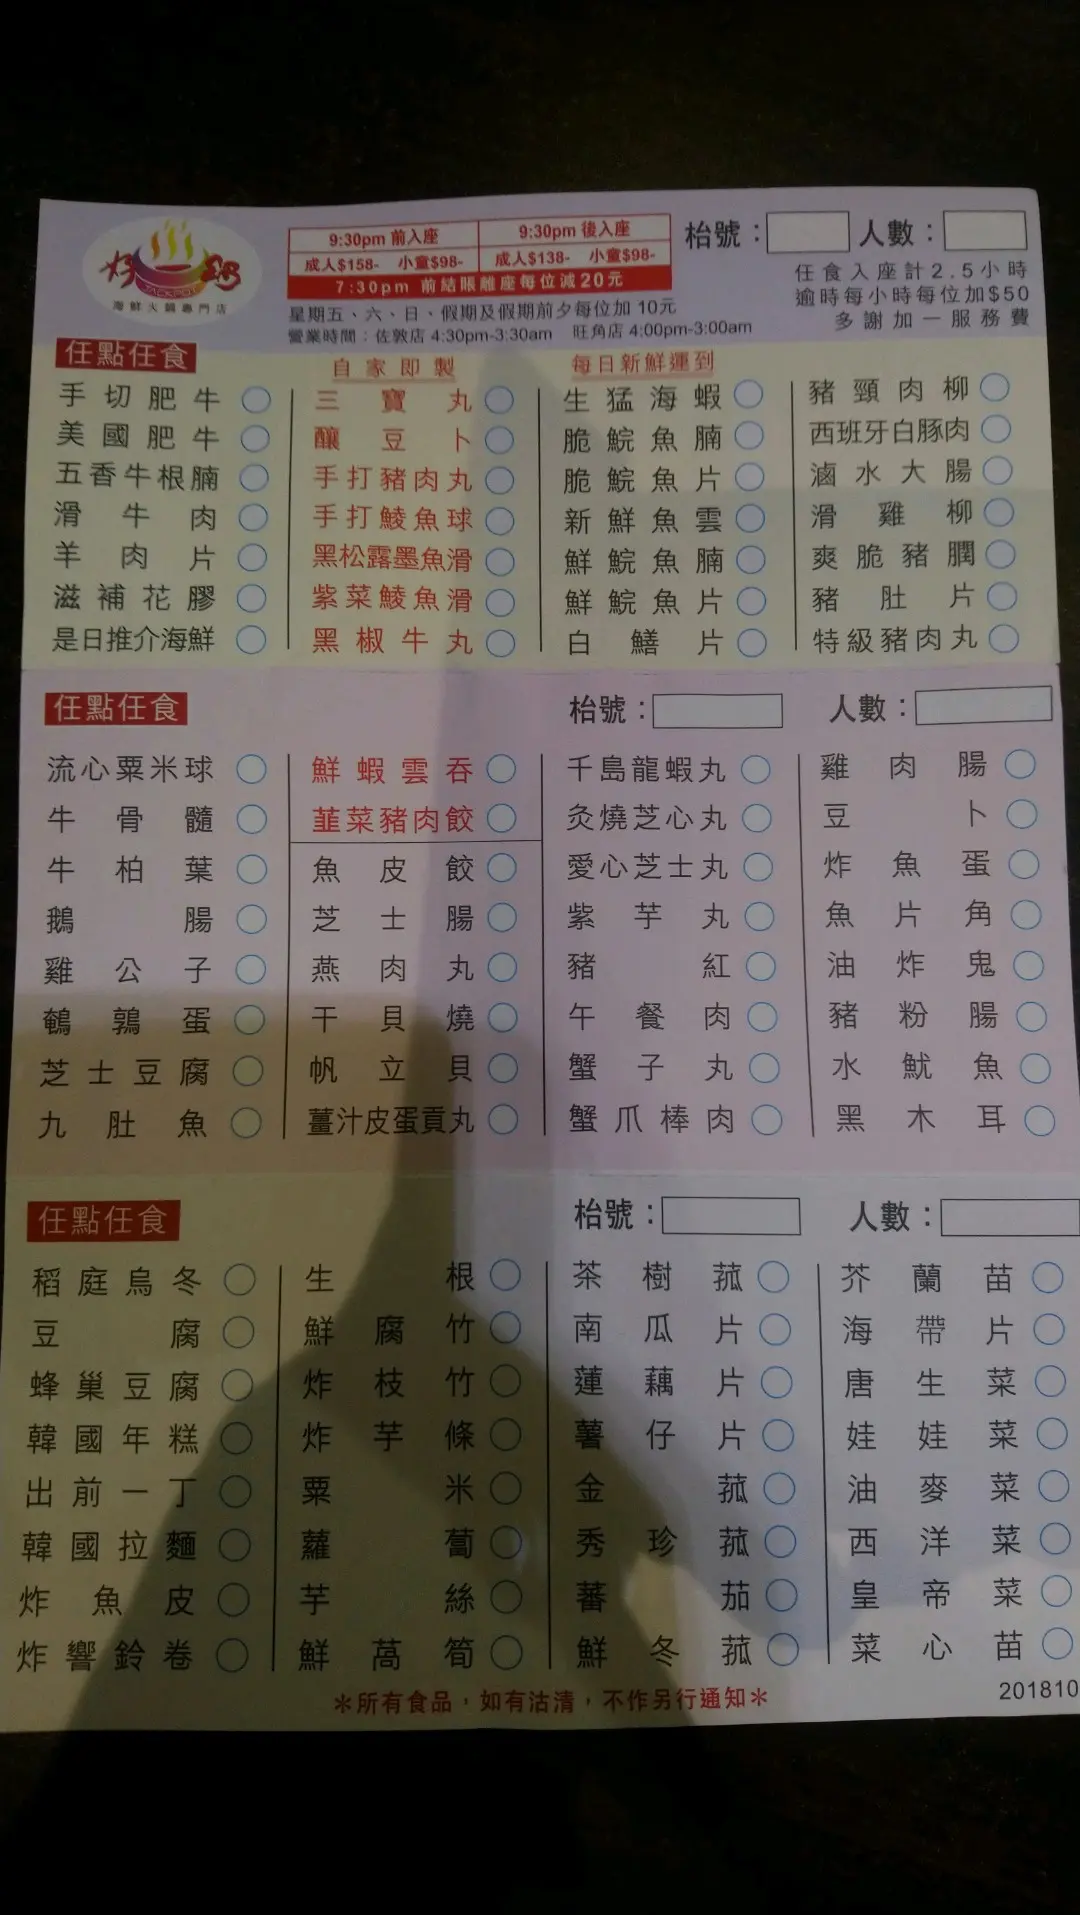 好鍋
JACKPOT
海鮮火鍋專門店
9:30pm 前入座
9:30pm 後入座
成人$158- 小童$98-
成人$138- 小童$98-
7:30pm 前結賬離座每位減20元
星期五、六、日、假期及假期前夕每位加 10元
營業時間：佐敦店 4:30pm-3:30am 旺角店 4:00pm-3:00am
枱號：
人數：
任食入座計2.5小時
逾時每小時每位加$50
多謝加一服務費
任點任食
手切肥牛
美國肥牛
五香牛根腩
滑牛肉
羊肉片
滋補花膠
是日推介海鮮
自家即製
三寶丸
釀豆卜
手打豬肉丸
手打鯪魚球
黑松露墨魚滑
紫菜鯪魚滑
黑椒牛丸
每日新鮮運到
生猛海蝦
脆鯇魚腩
脆鯇魚片
新鮮魚雲
鮮鯇魚腩
鮮鯇魚片
白鱔片
豬頸肉柳
西班牙白豚肉
滷水大腸
滑雞柳
爽脆豬膶
豬肚片
特級豬肉丸
任點任食
枱號：
人數：
流心粟米球
牛骨髓
牛柏葉
鵝腸
雞公子
鵪鶉蛋
芝士豆腐
九肚魚
鮮蝦雲吞
韮菜豬肉餃
魚皮餃
芝士腸
燕肉丸
干貝燒
帆立貝
薑汁皮蛋貢丸
千島龍蝦丸
灸燒芝心丸
愛心芝士丸
紫芋丸
豬紅
午餐肉
蟹子丸
蟹爪棒肉
雞肉腸
豆卜
炸魚蛋
魚片角
油炸鬼
豬粉腸
水魷魚
黑木耳
任點任食
枱號：
人數：
稻庭烏冬
豆腐
蜂巢豆腐
韓國年糕
出前一丁
韓國拉麵
炸魚皮
炸響鈴卷
生根
鮮腐竹
炸枝竹
炸芋條
粟米
蘿蔔
芋絲
鮮萵筍
茶樹菰
南瓜片
蓮藕片
薯仔片
金菰
秀珍菰
蕃茄
鮮冬菰
芥蘭苗
海帶片
唐生菜
娃娃菜
油麥菜
西洋菜
皇帝菜
菜心苗
＊所有食品，如有沽清，不作另行通知＊
201810